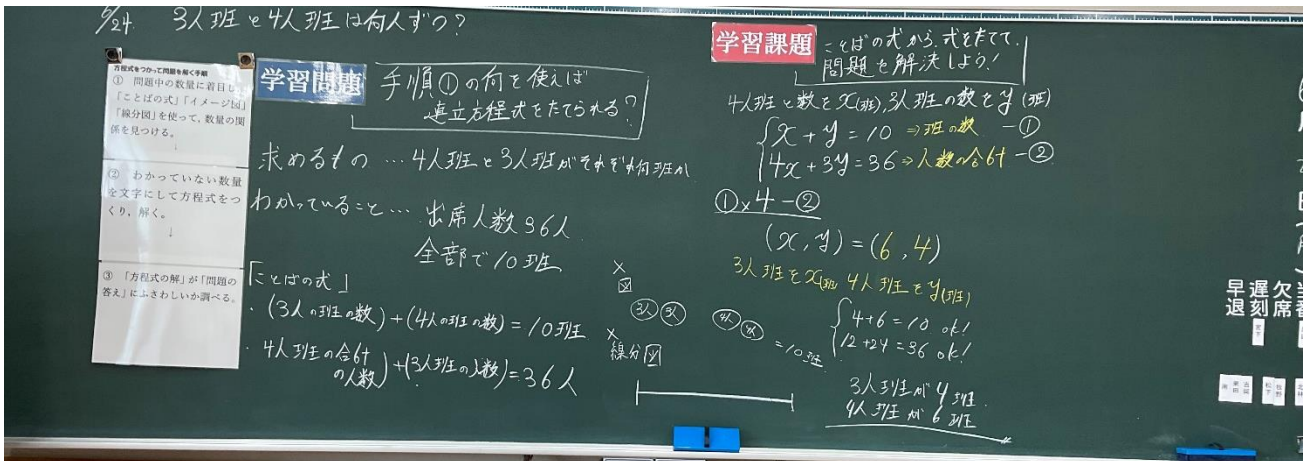 6/24. 3人班と4人班は何人ずつ?
方程式をつかって問題を解く手順
① 問題中の数量に着目し、
「ことばの式」「イメージ図」
「線分図」を使って、数量の関
係を見つける。
↓
② わかっていない数量
を文字にして方程式をつ
くり、解く。
↓
③ 「方程式の解」が「問題の
答え」にふさわしいか調べる。
学習問題
手順①の何を使えば
連立方程式をたてられる?
求めるもの…4人班と3人班がそれぞれ何班か
わかっていること… 出席人数36人
全部で10班
「ことばの式」
・(3人の班の数)+(4人の班の数)=10班
・4人班の合計の人数)+(3人班の人数)=36人
×
図
3人 3人 4人 4人 =10班
×
線分図
学習課題
ことばの式から式をたてて、
問題を解決しよう!
4人班と数をx(班),3人班の数をy(班)
x+y=10 ⇒班の数 -①
4x+3y=36⇒人数の合計-②
①×4-②
(x,y)=(6,4)
3人班をx(班 4人班をy(班)
4+6=10 ok!
12+24=36 ok!
3人班が4班
4人班が6班
欠席
遅刻
早退